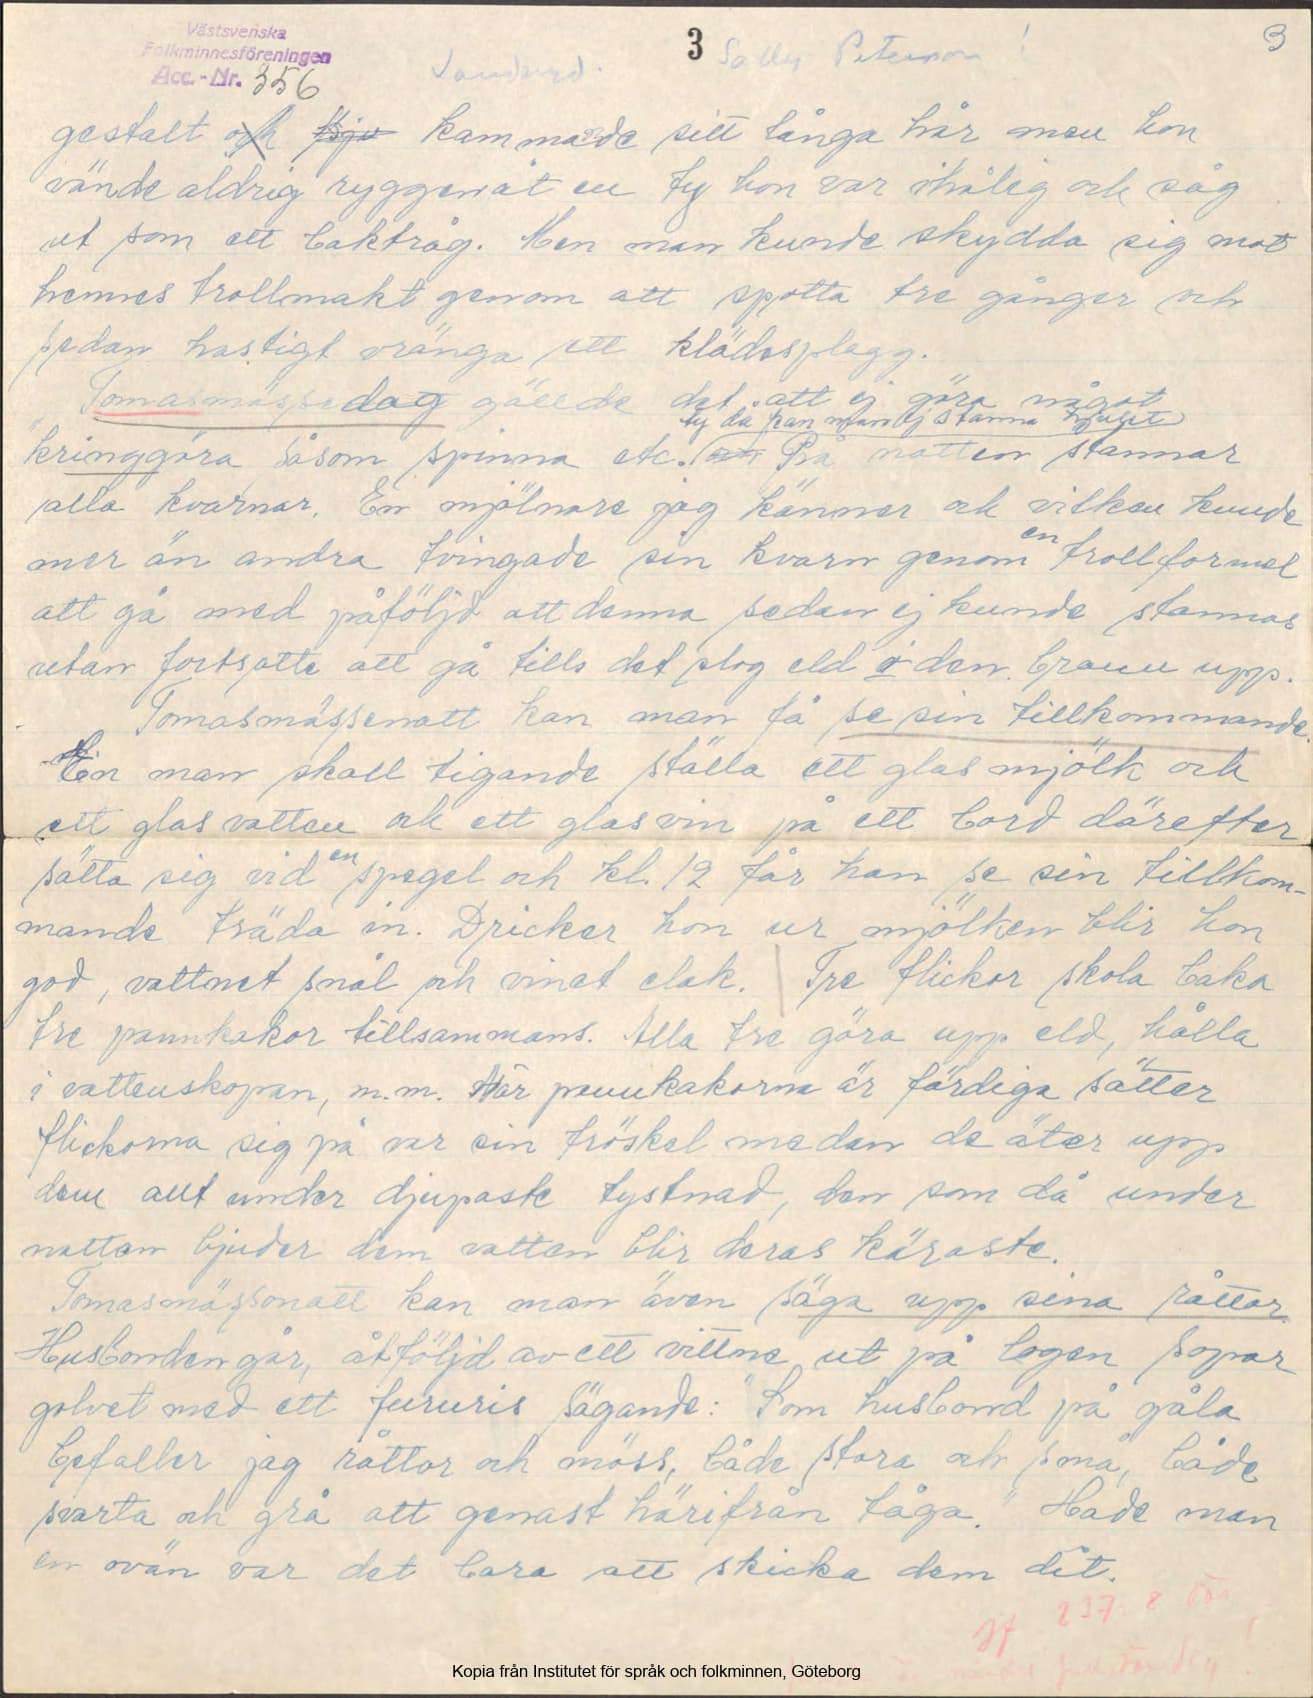 Västsvenska
Folkminnesföreningen
Acc.-Nr. 356
3
3
gestalt och sju kammade sitt långa hår men hon
vände aldrig ryggen åt en ty hon var ihålig och såg
ut som ett baktråg. Men man kunde skydda sig mot
hennes trollmakt genom att spotta tre gånger och
sedan hastigt vränga ett klädesplagg.
Tomasmässedag gällde det att ej göra något
ty då kan man ej stanna hjulet
"kringgöra såsom spinna etc. På natten stannar
alla kvarnar. En mjölnare jag känner och vilken kunde
mer än andra tvingade sin kvarn genom en trollformel
att gå med påföljd att denna sedan ej kunde stannas
utan fortsatte att gå tills det slog eld i den. Brann upp.
Tomasmässenatt kan man få se sin tillkommande.
En man skall tigande ställa ett glas mjölk och
ett glas vatten och ett glas vin på ett bord därefter
sätta sig vid en spegel och kl. 12 får han se sin tillkom-
mande träda in. Dricker hon ur mjölken blir hon
god, vattnet snål och vinet elak. Tre flickor skola baka
tre pannkakor tillsammans. Alla tre göra upp eld, hålla
i vattenskopan, m.m. När pannkakorna är färdiga sätter
flickorna sig på var sin tröskel medan de äter upp
dem allt under djupaste tystnad, den som då under
natten bjuder dem vatten blir deras käraste.
Tomasmässonatt kan man även säga upp sina råttor.
Husbonden går, åtföljd av ett vittne ut på logen sopar
golvet med ett fururis sägande: "Som husbond på gåla
befaller jag råttor och möss, både stora och små, både
svarta och grå att genast härifrån tåga." Hade man
en ovän var det bara att skicka dem dit.
jf 237. 8
Kopia från Institutet för språk och folkminnen, Göteborg